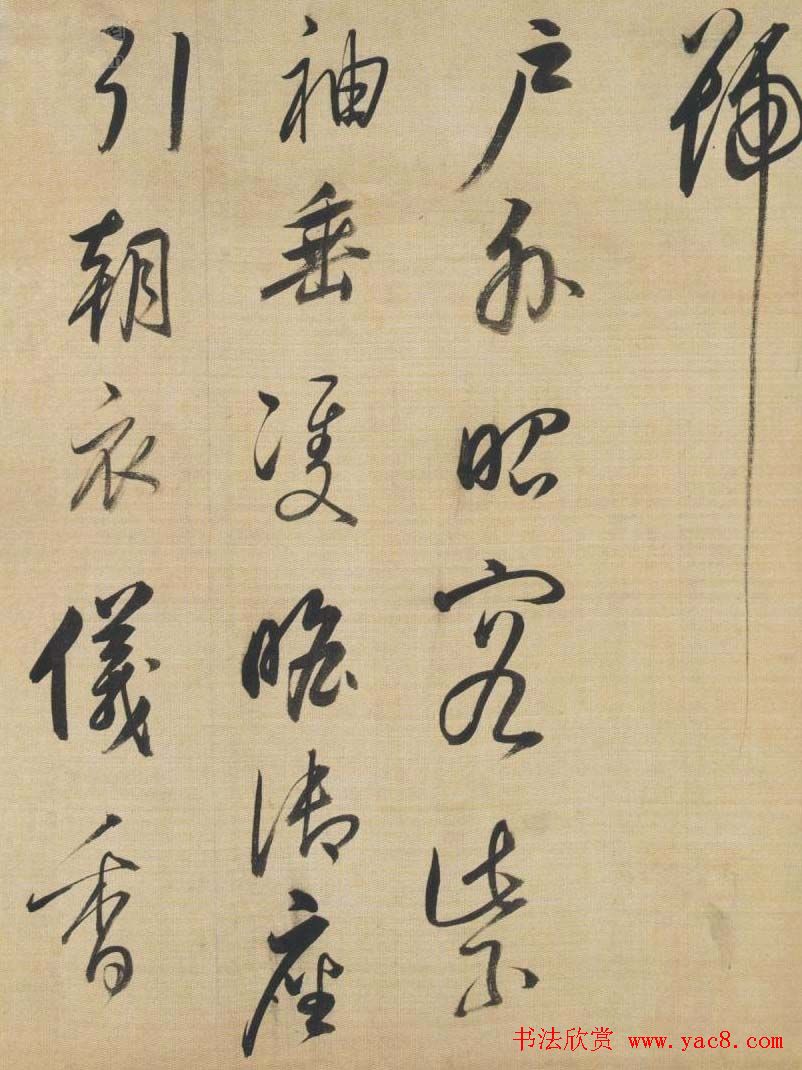 號
戶外昭容紫
袖垂雙瞻御座
引朝衣儀香
书法欣赏 www.yac8.com